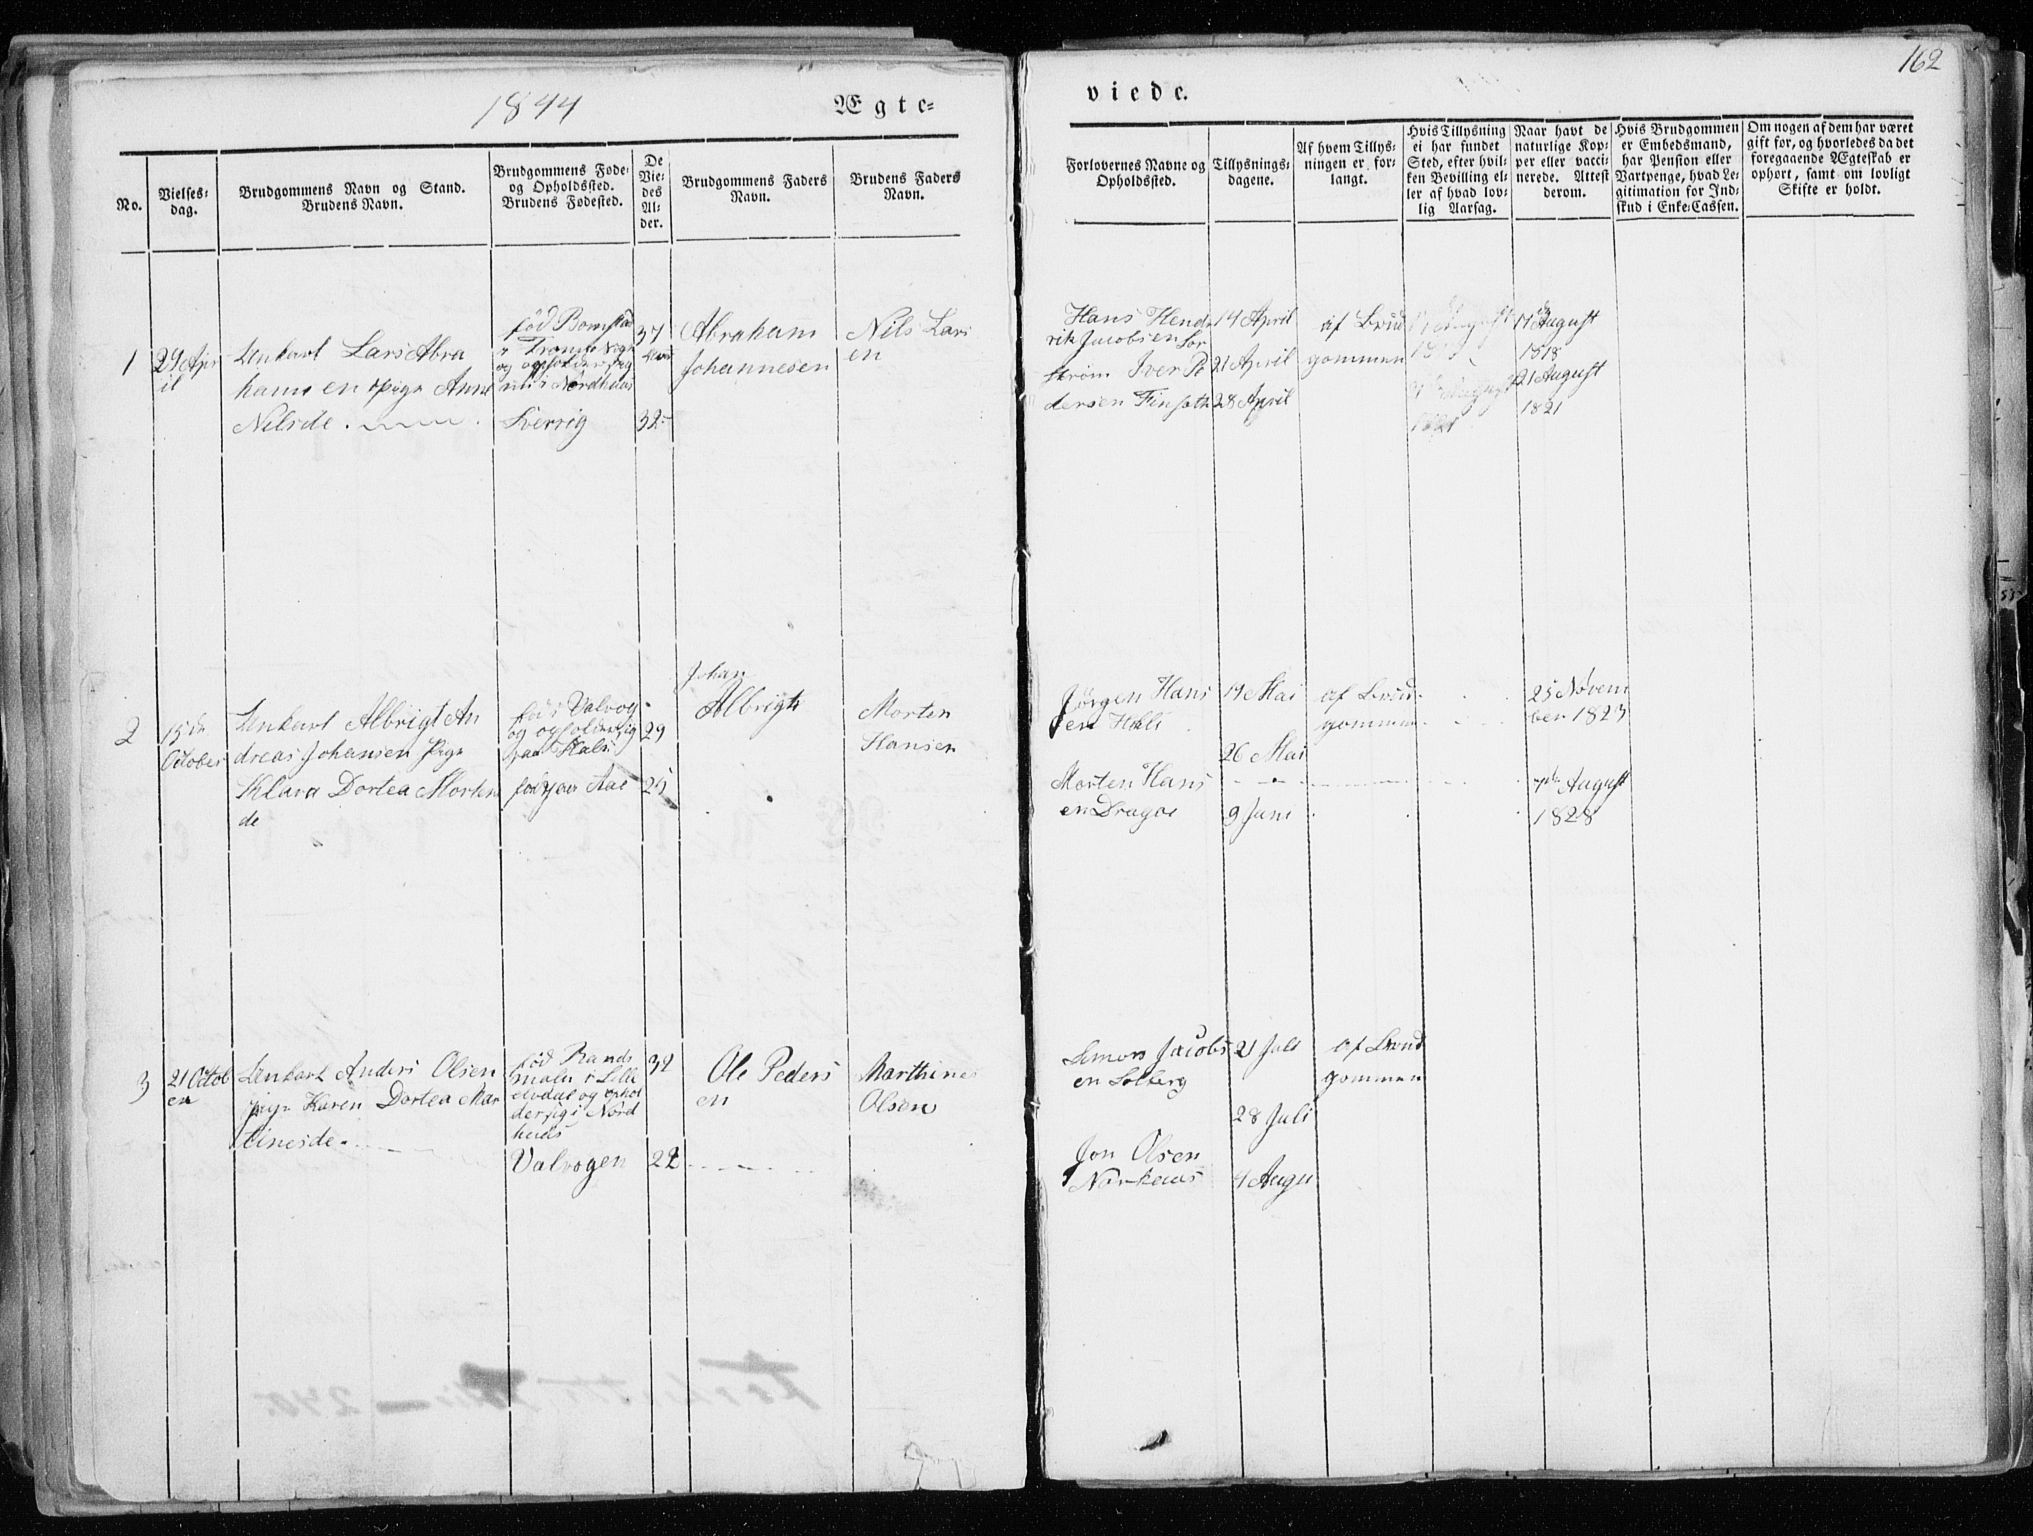 1844
Ægte-
No.
Vielses-
dag.
Brudgommens Navn og Stand.
Brudens Navn.
Brudgommens Føde-
og Opholdssted.
Brudens Fødested.
De
Vie-
des
Al-
der.
Brudgommens Faders
Navn.
Brudens Faders
Navn.
1
29 Apr
il
Unkarl Lars Abra
hamsen Pige Anne
Nilsde
fød
og
Sverrig
37
32
Abraham
Johannesen
Nils Lars
en
2
15de
October
Unkarl Albrigt An
dreas Johansen Pige
Klara Dortea Morten
de
fød i Valvog
og opholdersig
paa
29
25
Johan
Albrigt
Morten
Hansen
3
21 Octob
er
Unkarl Anders Olsen
Pige Karen Dortea Mar
tinesde
fød Rands
i Lille
elvdal og ophol
dersig i Nord
huus
Valvogen
32
22
Ole Peders
en
Marthines
Olsen
162
viede.
Forlovernes Navne og
Opholdssted.
Tillysnings-
dagene.
Af hvem Tillys-
ningen er for-
langt.
Hvis Tillysning
ei har fundet
Sted, efter hvil-
ken Bevilling el-
ler af hvad lov-
lig Aarsag.
Naar havt de
naturlige Kop-
per eller vacci-
nerede. Attest
derom.
Hvis Brudgommen
er Embedsmand,
har Pension eller
Vartpenge, hvad Le-
gitimation for Ind-
skud i Enke-Cassen.
Om nogen af dem har været
gift før, og hvorledes da det
foregaaende Ægteskab er
ophørt, samt om lovligt
Skifte er holdt.
Hans Hend
rik Jacobsen Sør
strøm Iver Pe
dersen
14 April
21 April
28 April
af Brud
gommen
August
1818
21 August
1821
Jørgen Hans
en
Morten Hans
en Dragøe
19 Mai
26 Mai
9 Juni
af Brud
gommen
25 Novem
ber 1823
7de August
1828
Simon Jacobs
en Solberg
Jon Olsen
21 Juli
28 Juli
4 Augu
af Brud
gommen